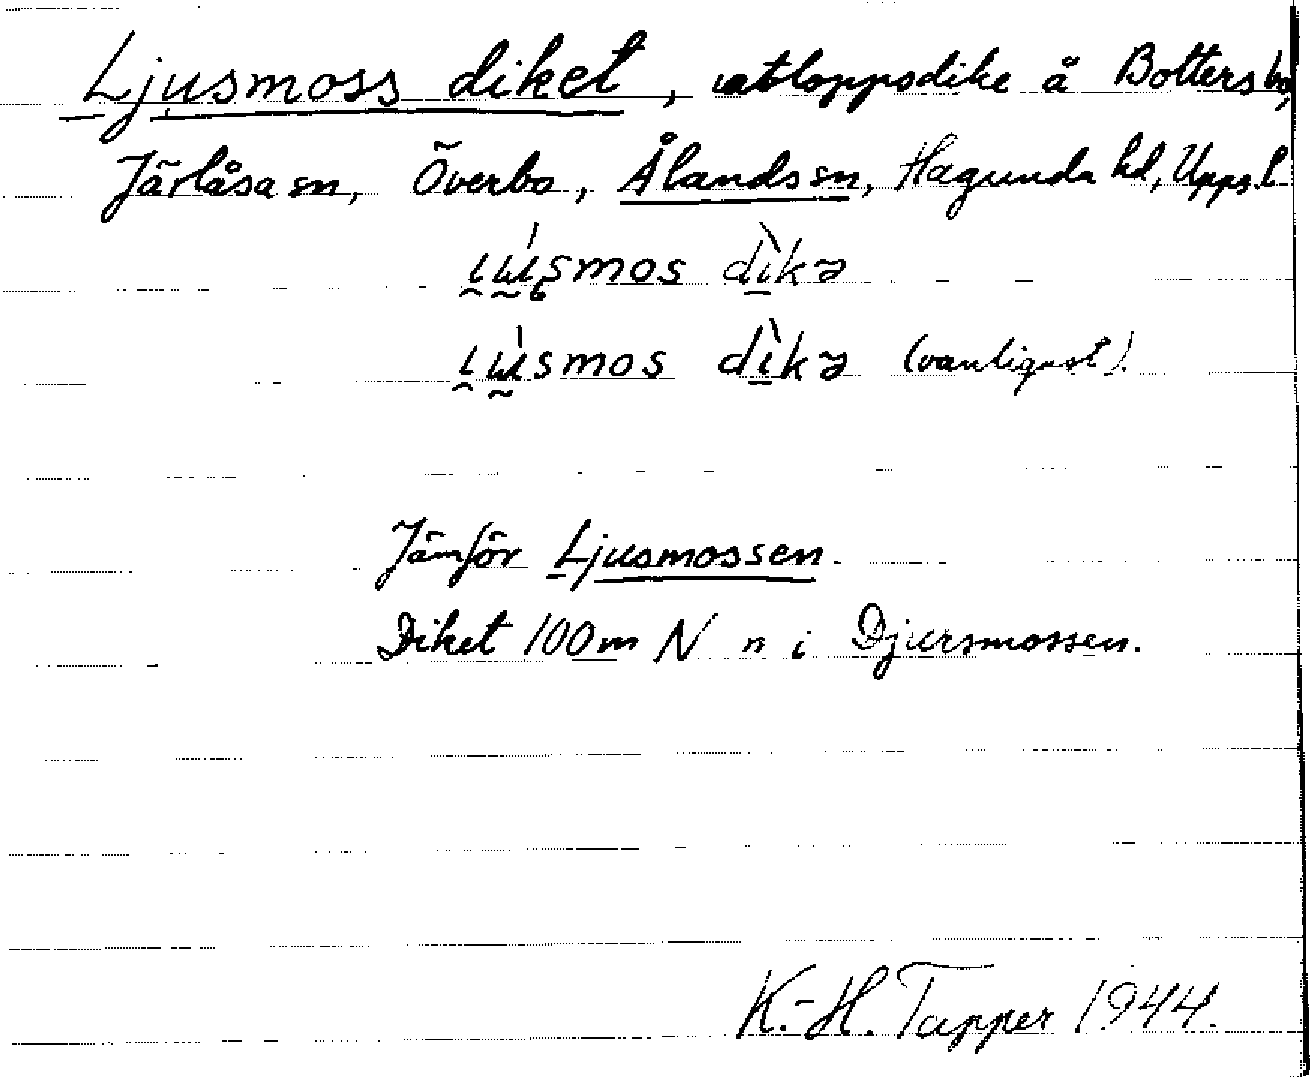 Ljusmoss diket, utloppsdike å Bottersbo,
Järlåsa sn, Överbo, Ålands sn, Hagunda hd, Uppsl.
smos dìkə
smos dìkə (vanligast).
Jämför Ljusmossen.
Diket 100m N n i Djursmossen.
K.-H. Tapper 1944.